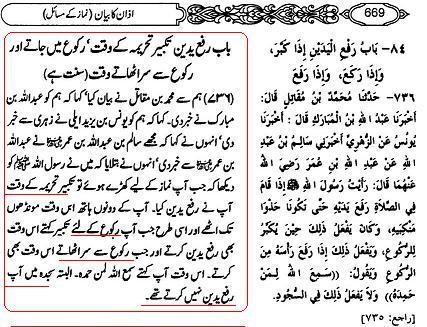 اذان کا بیان (نماز کے مسائل)
669
باب رفع یدین تکبیر تحریمہ کے وقت، رکوع میں جاتے اور
رکوع سے سر اٹھاتے وقت (سنت ہے)
(۷۳۶) ہم سے محمد بن مقاتل نے بیان کیا، کہا کہ ہم کو عبداللہ بن
مبارک نے خبر دی، کہا کہ ہم کو یونس بن یزید ایلی نے زہری سے خبر
دی، کہا کہ مجھے سالم بن عبداللہ بن عمر نے عبداللہ بن
عمر سے خبر دی، انہوں نے بتلایا کہ میں نے رسول اللہ ﷺ کو
دیکھا کہ جب آپ نماز کے لیے کھڑے ہوئے تو تکبیر تحریمہ کے وقت
آپ نے رفع یدین کیا۔ آپ کے دونوں ہاتھ اس وقت مونڈھوں
تک اٹھے اور اسی طرح جب آپ رکوع کے لئے تکبیر کہتے اس وقت
بھی رفع یدین کرتے اور جب رکوع سے سر اٹھاتے اس وقت بھی
کرتے۔ اس وقت آپ کہتے سمع اللہ لمن حمدہ۔ البتہ سجدہ میں آپ
رفع یدین نہیں کرتے تھے۔
٨٤- بَابُ رَفْعِ الْيَدَيْنِ إِذَا كَبَّرَ،
وَإِذَا رَكَعَ، وَإِذَا رَفَعَ
٧٣٦- حَدَّثَنَا مُحَمَّدُ بْنُ مُقَاتِلٍ قَالَ:
أَخْبَرَنَا عَبْدُ اللهِ بْنُ الْمُبَارَكِ قَالَ: أَخْبَرَنَا
يُونُسُ عَنِ الزُّهْرِيِّ أَخْبَرَنِي سَالِمُ بْنُ عَبْدِ
اللهِ عَنْ عَبْدِ اللهِ بْنِ عُمَرَ رَضِيَ اللهُ
عَنْهُمَا قَالَ: رَأَيْتُ رَسُولَ اللهِ ﷺ إِذَا قَامَ
فِي الصَّلَاةِ رَفَعَ يَدَيْهِ حَتَّى تَكُونَا حَذْوَ
مَنْكِبَيْهِ، وَكَانَ يَفْعَلُ ذَلِكَ حِيْنَ يُكَبِّرُ
لِلرُّكُوعِ، وَيَفْعَلُ ذَلِكَ إِذَا رَفَعَ رَأْسَهُ مِنَ
الرُّكُوعِ وَيَقُولُ: ((سَمِعَ اللهُ لِمَنْ
حَمِدَهُ)) وَلَا يَفْعَلُ ذَلِكَ فِي السُّجُودِ.
[راجع: ٧٣٥]